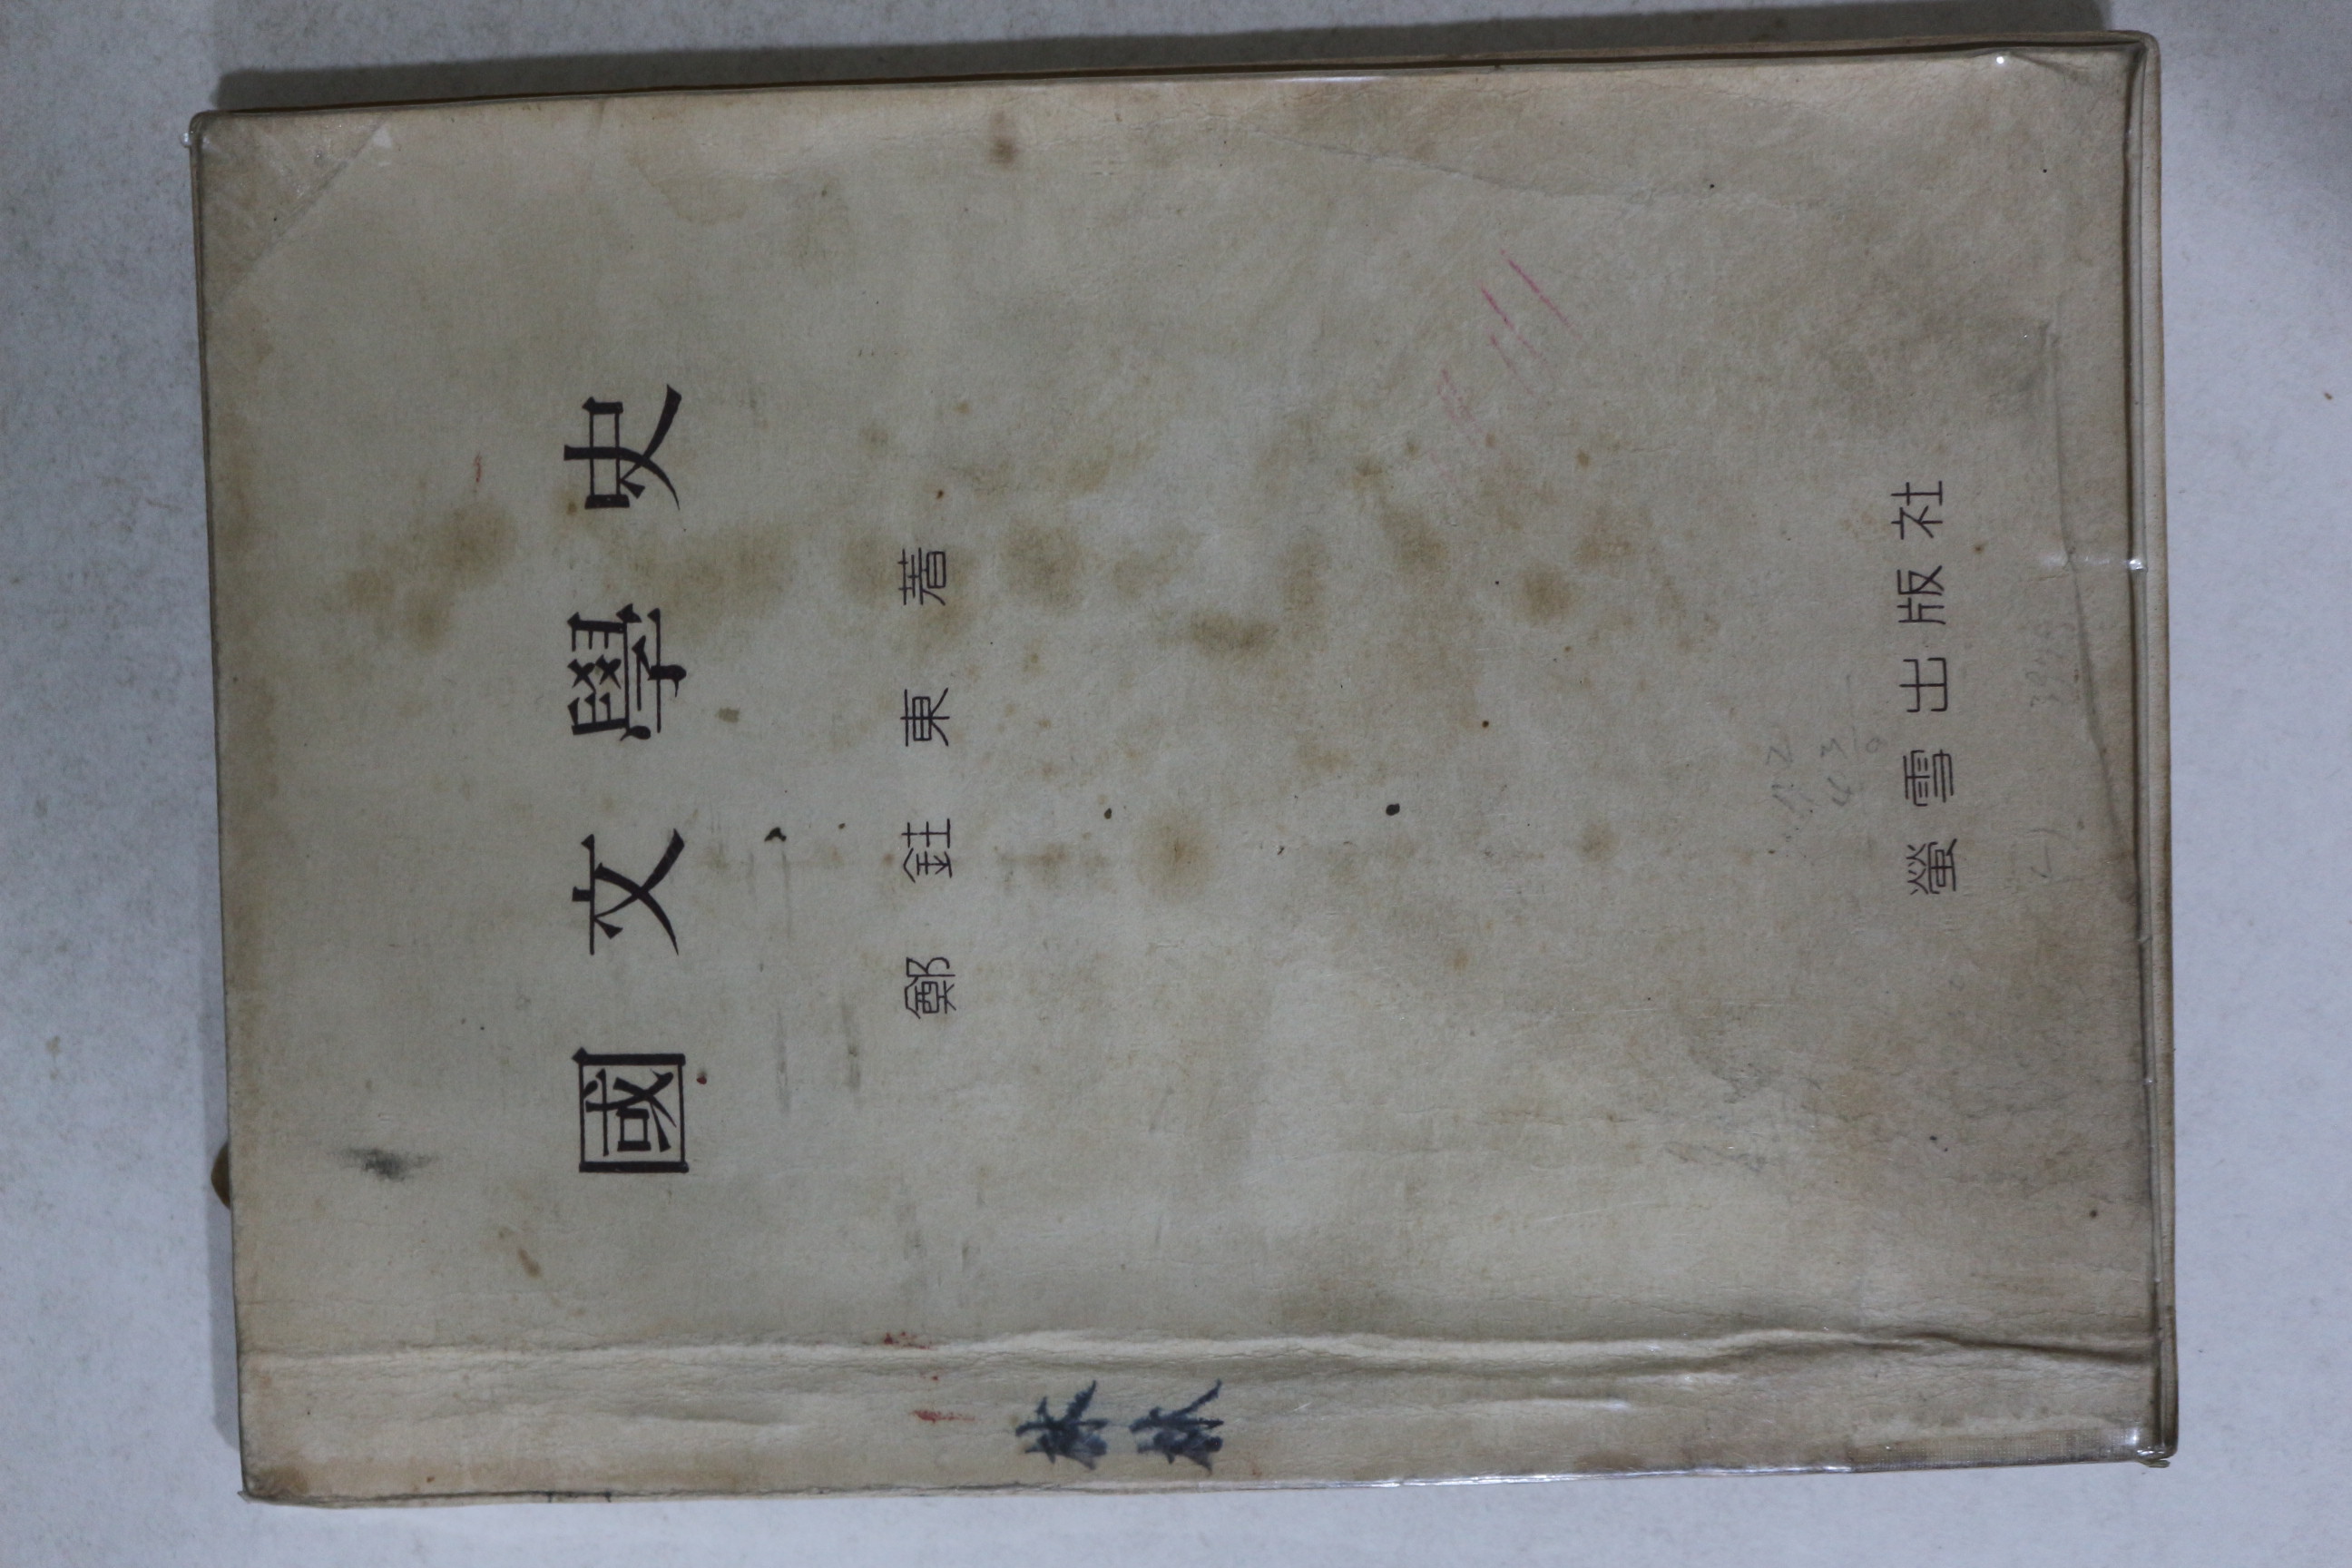 國文學史
鄭鉒東著
螢雪出版社